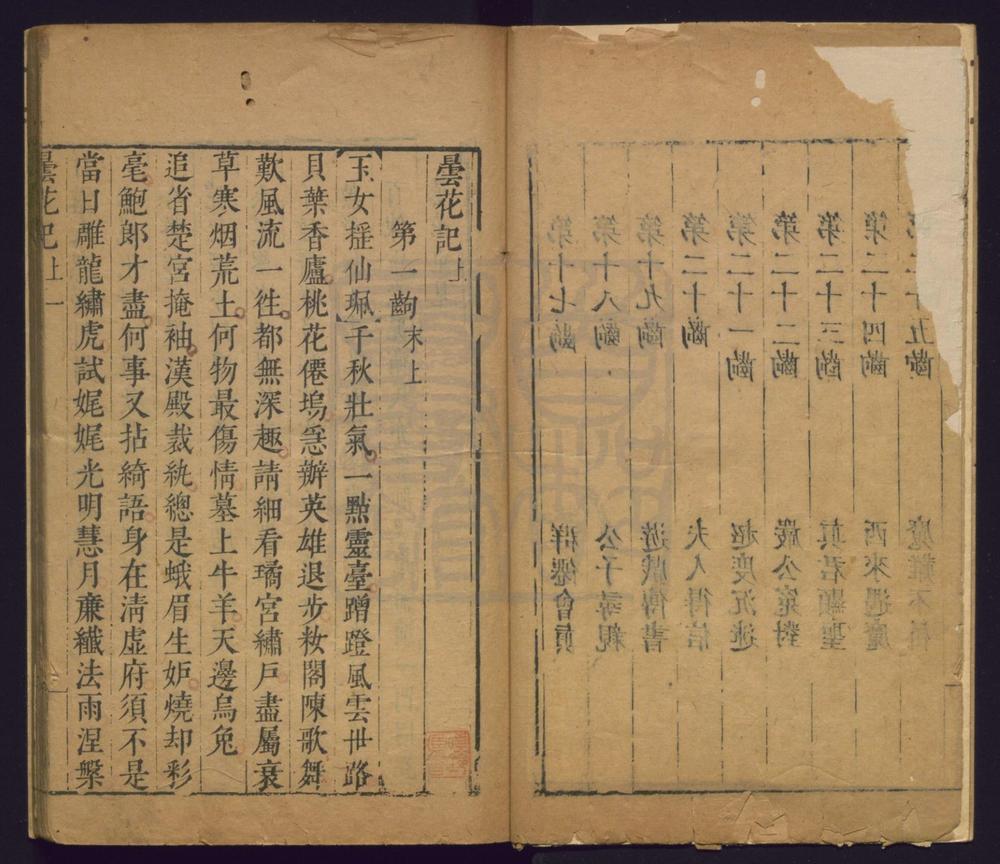 第十七齣 群僊會
第十八齣 公子尋親
第十九齣 遊戲傳書
第二十齣 夫人得信
第二十一齣 超度沉迷
第二十二齣 嚴公冤對
第二十三齣 真君顯聖
第二十四齣 西來遇魔
十五齣 魔難不
曇花記上
第一齣末上
玉女揺仙珮千秋壯氣一點靈臺蹭蹬風雲丗路
貝葉香廬桃花僊塢急辦英雄退步妝閣陳歌舞
歎風流一徃都無深趣請細看璚宮繡戶盡屬衰
草寒烟荒土何物最傷情墓上牛羊天邊烏兎
追省楚宮掩袖漢殿裁紈總是蛾眉生妒燒却彩
毫鮑郎才盡何事又拈綺語身在清虛府須不是
當日雕龍繡虎試娓娓光明慧月亷纖法雨涅槃
曇花記上一